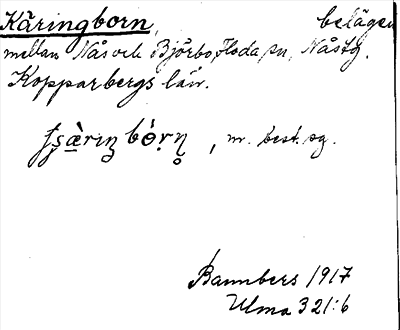 Käringborn, belägen
mellan Nås och Björbo, Floda sn, Nåstg.
Kopparbergs län.
, nr. best. sg.
Bannbers 1917
Ulma 321:6